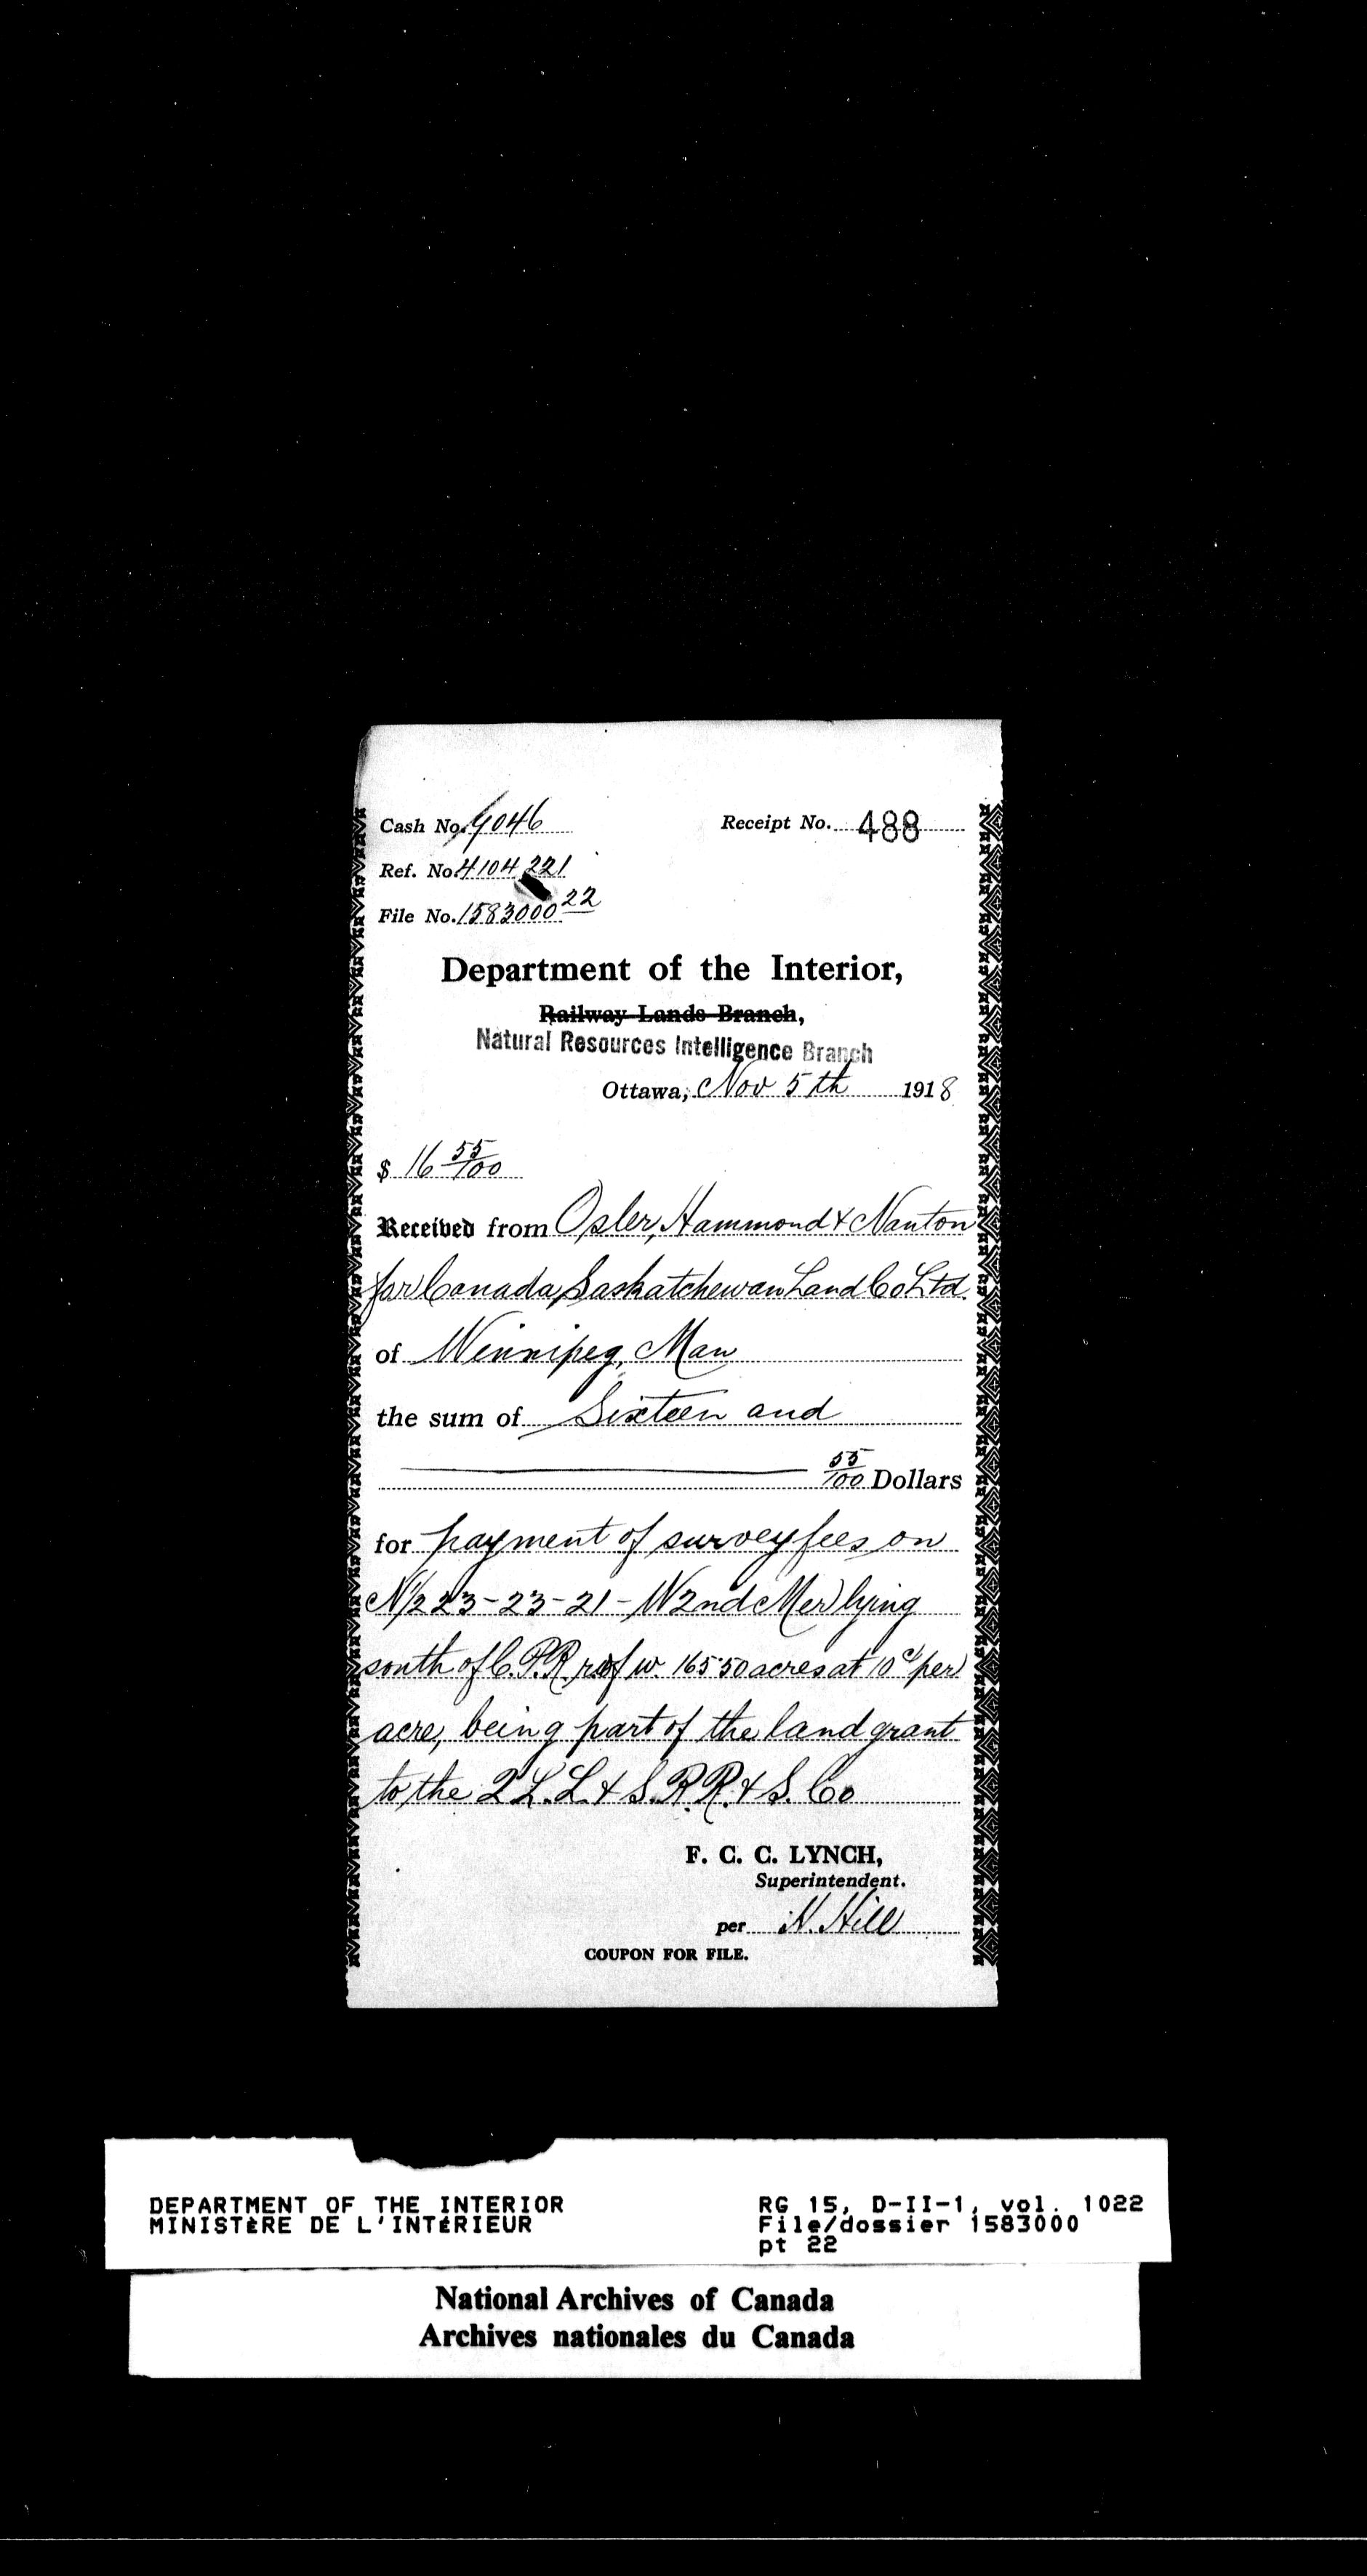 Cash No. 9046
Receipt No. 488
Ref. No. 4104221
File No. 1583000 22
Department of the Interior,
Railway Lands Branch,
Natural Resources Intelligence Branch
Ottawa, Nov 5th 1918
$ 16 55/100
Received from Osler, Hammond & Nanton
for Canada Saskatchewan Land Co Ltd.
of Winnipeg, Man
the sum of Sixteen and
55/100 Dollars
for payment of survey fees on
N1/2 23-23-21-W2nd Mer lying
south of C.P.R. r of w. 165.50 acres at 10c per
acre, being part of the land grant
to the Q L. L. & S. R. R. & S. Co
F. C. C. LYNCH,
Superintendent.
per H. Hill
COUPON FOR FILE.
DEPARTMENT OF THE INTERIOR
MINISTÈRE DE L'INTÉRIEUR
RG 15, D-II-1, vol. 1022
File/dossier 1583000
pt 22
National Archives of Canada
Archives nationales du Canada